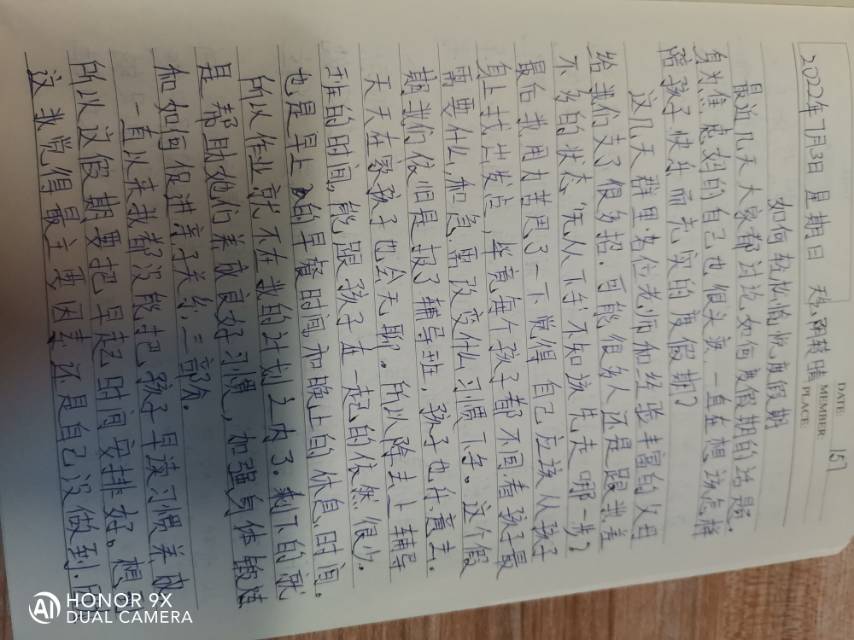 DATE: 157
MEMBER
PLACE:
2022年7月3日 星期日 天气:雨转晴
如何轻松愉悦度假期
最近几天大家都讨论如何度假期的话题.
身为焦虑妈的自己也很头疼一直在想该怎样
陪孩子快乐而充实的度假期?
这几天群里各位老师和经验丰富的父母
给我们支了很多招.可能很多人还是跟我差
不多的状态,无从下手不知该先走哪一步?
最后我用力苦思了一下觉得自己应该从孩子
身上找出发点,毕竟每个孩子都不同看孩子最
需要什么,和急需改变什么习惯下手。这个假
期我们依旧是报了辅导班,孩子也许意去.
天天在家孩子也会无聊。所以除去上辅导
班的时间,能跟孩子在一起的依然很少.
也是早上的早餐时间和晚上的休息时间.
所以作业就不在我的计划之内了.剩下的就
是帮助他们养成良好习惯,加强身体锻炼
和如何促进亲子关系三部分.
一直以来我都没能把孩子早读习惯养成
所以这假期要把早起时间安排好。想
这我觉得最主要因素还是自己没做到.
HONOR 9X
DUAL CAMERA